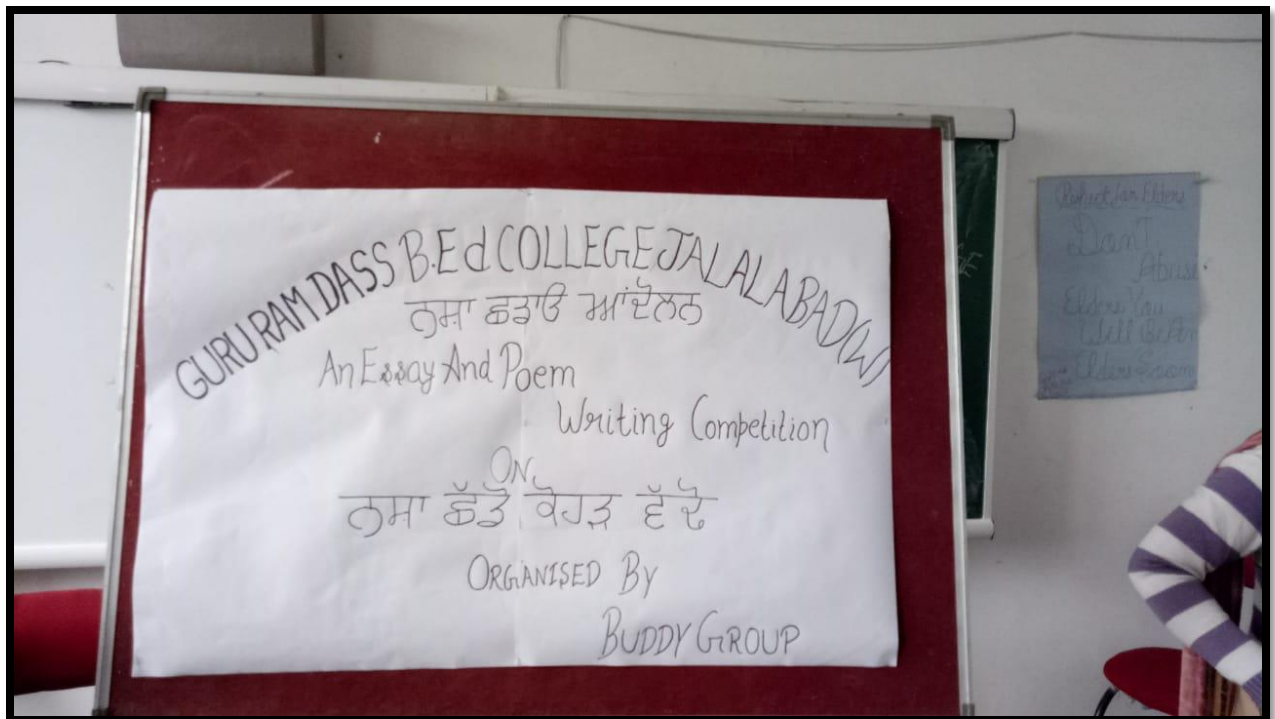 GURU RAM DASS B.Ed COLLEGE JALALABAD(W)
ਨਸ਼ਾ ਛਡਾਓ ਆਂਦੋਲਨ
An Essay And Poem
Writing Competition
ON
ਨਸ਼ਾ ਛੱਡੋ ਕੋਹੜ ਵੱਢੋ
ORGANISED By
BUDDY GROUP
Respect for Elders
Don't
Abuse
Elders You
Will Be An
Elder Soon